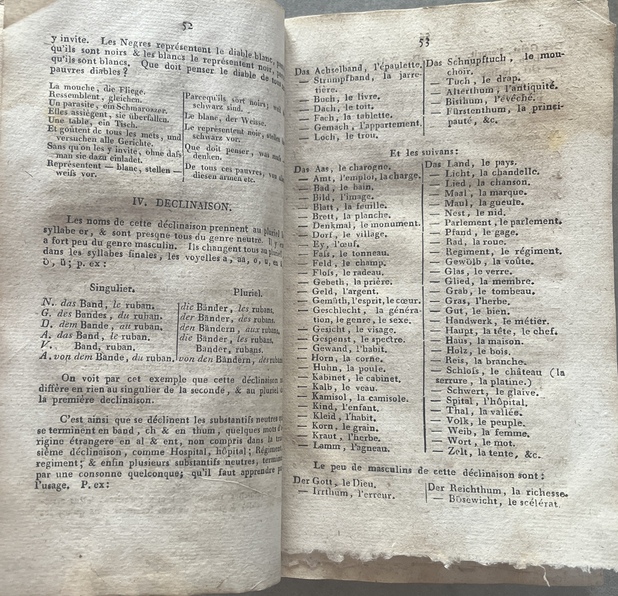 52
y invite. Les Negres représentent le diable blanc,
qu'ils sont noirs & les blancs le représentent noir,
qu'ils sont blancs. Que doit penser le diable de
pauvres diables ?
La mouche, die Fliege.
Ressemblent, gleichen.
Un parasite, ein Schmarozzer.
Elles assiégent, sie überfallen.
Une table, ein Tisch.
Et goûtent de tous les mets, und
versuchen alle Gerichte.
Sans qu'on les y invite, ohne daß
man sie dazu einladet.
Représentent — blanc, stellen —
weiß vor.
Parcequ'ils sont noirs;
schwarz sind.
Le blanc, der Weisse.
Le représentent noir, stellen
schwarz vor.
Que doit penser, was
denken.
De tous ces pauvres, von
diesen armen etc.
IV. DECLINAISON.
Les noms de cette déclinaison prennent au pluriel
syllabe er, & sont presque tous du genre neutre. Il y
a fort peu du genre masculin. Ils changent tous au
dans les syllabes finales, les voyelles a, ua, o, u,
ö, ü; p. ex:
Singulier.
N. das Band, le ruban.
G. des Bandes, du ruban,
D. dem Bande, au ruban,
A. das Band, le ruban.
V. Band, ruban.
A. von dem Bande, du ruban,
Pluriel.
die Bänder, les rubans.
der Bänder, des rubans.
den Bändern, aux rubans.
die Bänder, les rubans.
Bänder, rubans.
von den Bändern, des
On voit par cet exemple que cette déclinaison
diffère en rien au singulier de la seconde, & au pluriel
la première declinaison.
C'est ainsi que se déclinent les substantifs neutres
se terminent en band, ch & en thum, quelques mots
rigine étrangere en al & ent, non compris dans la
sième déclinaison, comme Hospital, hôpital;
regiment; & enfin plusieurs substantifs neutres,
par une consonne quelconque; qu'il faut apprendre
l'usage. P. ex:
53
Das Achselband, l'épaulette.
— Strumpfband, la jarre-
tière.
— Buch, le livre.
— Dach, le toit.
— Fach, la tablette.
— Gemach, l'appartement.
— Loch, le trou.
Das Schnupftuch, le mou-
choir.
— Tuch, le drap.
— Alterthum, l'antiquité.
— Bisthum, l'évêché.
— Fürstenthum, la princi-
pauté, &c.
Et les suivans:
Das Aas, le charogne.
— Amt, l'emploi, la charge.
— Bad, le bain.
— Bild, l'image.
— Blatt, la feuille.
— Brett, la planche.
— Denkmal, le monument.
— Dorf, le village.
— Ey, l'œuf.
— Faß, le tonneau.
— Feld, le champ.
— Floß, le radeau.
— Gebeth, la prière.
— Geld, l'argent.
— Gemüth, l'esprit, le cœur.
— Geschlecht, la généra-
tion, le genre, le sexe.
— Gesicht, le visage.
— Gespenst, le spectre.
— Gewand, l'habit.
— Horn, la corne.
— Huhn, la poule.
— Kabinet, le cabinet.
— Kalb, le veau.
— Kamisol, la camisole.
— Kind, l'enfant.
— Kleid, l'habit.
— Korn, le grain.
— Kraut, l'herbe.
— Lamm, l'agneau.
Das Land, le pays.
— Licht, la chandelle.
— Lied, la chanson.
— Maal, la marque.
— Maul, la gueule.
— Nest, le nid.
— Parlement, le parlement.
— Pfand, le gage.
— Rad, la roue.
— Regiment, le régiment.
— Gewölb, la voûte.
— Glas, le verre.
— Glied, la membre.
— Grab, le tombeau.
— Gras, l'herbe.
— Gut, le bien.
— Handwerk, le métier.
— Haupt, la tête, le chef.
— Haus, la maison.
— Holz, le bois.
— Reis, la branche.
— Schloß, le château (la
serrure, la platine.)
— Schwert, le glaive.
— Spital, l'hôpital.
— Thal, la vallée.
— Volk, le peuple.
— Weib, la femme.
— Wort, le mot.
— Zelt, la tente, &c.
Le peu de masculins de cette déclinaison sont:
Der Gott, le Dieu.
— Irrthum, l'erreur.
Der Reichthum, la richesse.
— Bösewicht, le scélérat.